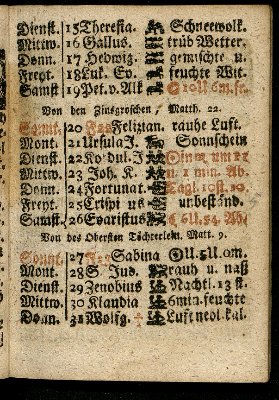 Dienst. 15 Theresia. Schneewolk.
Mittw. 16 Gallus. trüb Wetter.
Donn. 17 Hedwig. gemischte u.
Freyt. 18 Luk. Ev. feuchte Wit.
Samst 19 Pet. v. Alk
Von den Zinsgroschen, Matth. 22.
20 Felizian. rauhe Luft.
Mont. 21 Ursula J. Sonnschein
Dienst. 22 Kordul. J
Mittw. 23 Joh. K. u. 1 min. Ab.
Donn. 24 Fortunat.
Freyt. 25 Crispi us unbeständ.
Samst. 26 Evaristus
Von des Obersten Töchterlein. Matt. 9.
Sonnt. 27 Sabina
Mont. 28 S. Jud. rauh u. naß
Dienst. 29 Zenobius Nachtl. 13 st.
Mittw. 30 Klaudia 6min. feuchte
Donn. 31 Wolfg. † Luft